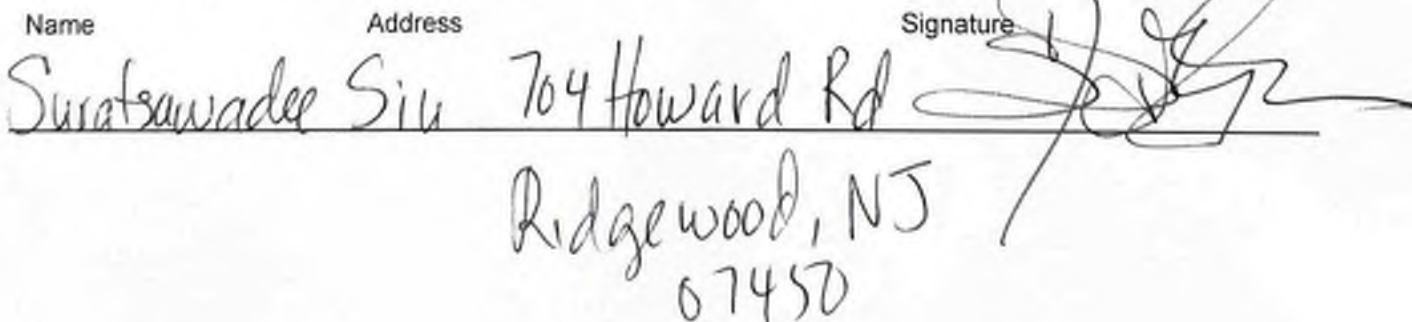 Name Address Signature
Suratsawadee Siu 704 Howard Rd
Ridgewood, NJ
07450